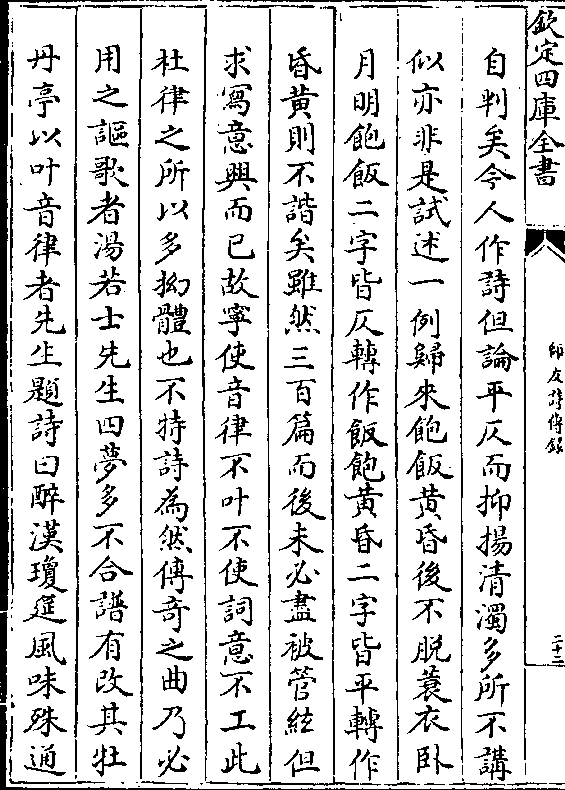 欽定四庫全書
師友詩傳錄
二十二
自判矣今人作詩但論平仄而抑揚清濁多所不講
似亦非是試述一例歸來飽飯黄昏後不脱蓑衣臥
月明飽飯二字皆仄轉作飯飽黄昏二字皆平轉作
昏黄則不諧矣雖然三百篇而後未必盡被管絃但
求寫意興而已故寧使音律不叶不使詞意不工此
杜律之所以多拗體也不特詩為然傳竒之曲乃必
用之謳歌者湯若士先生四夢多不合譜有改其牡
丹亭以叶音律者先生題詩曰醉漢瓊筵風味殊通